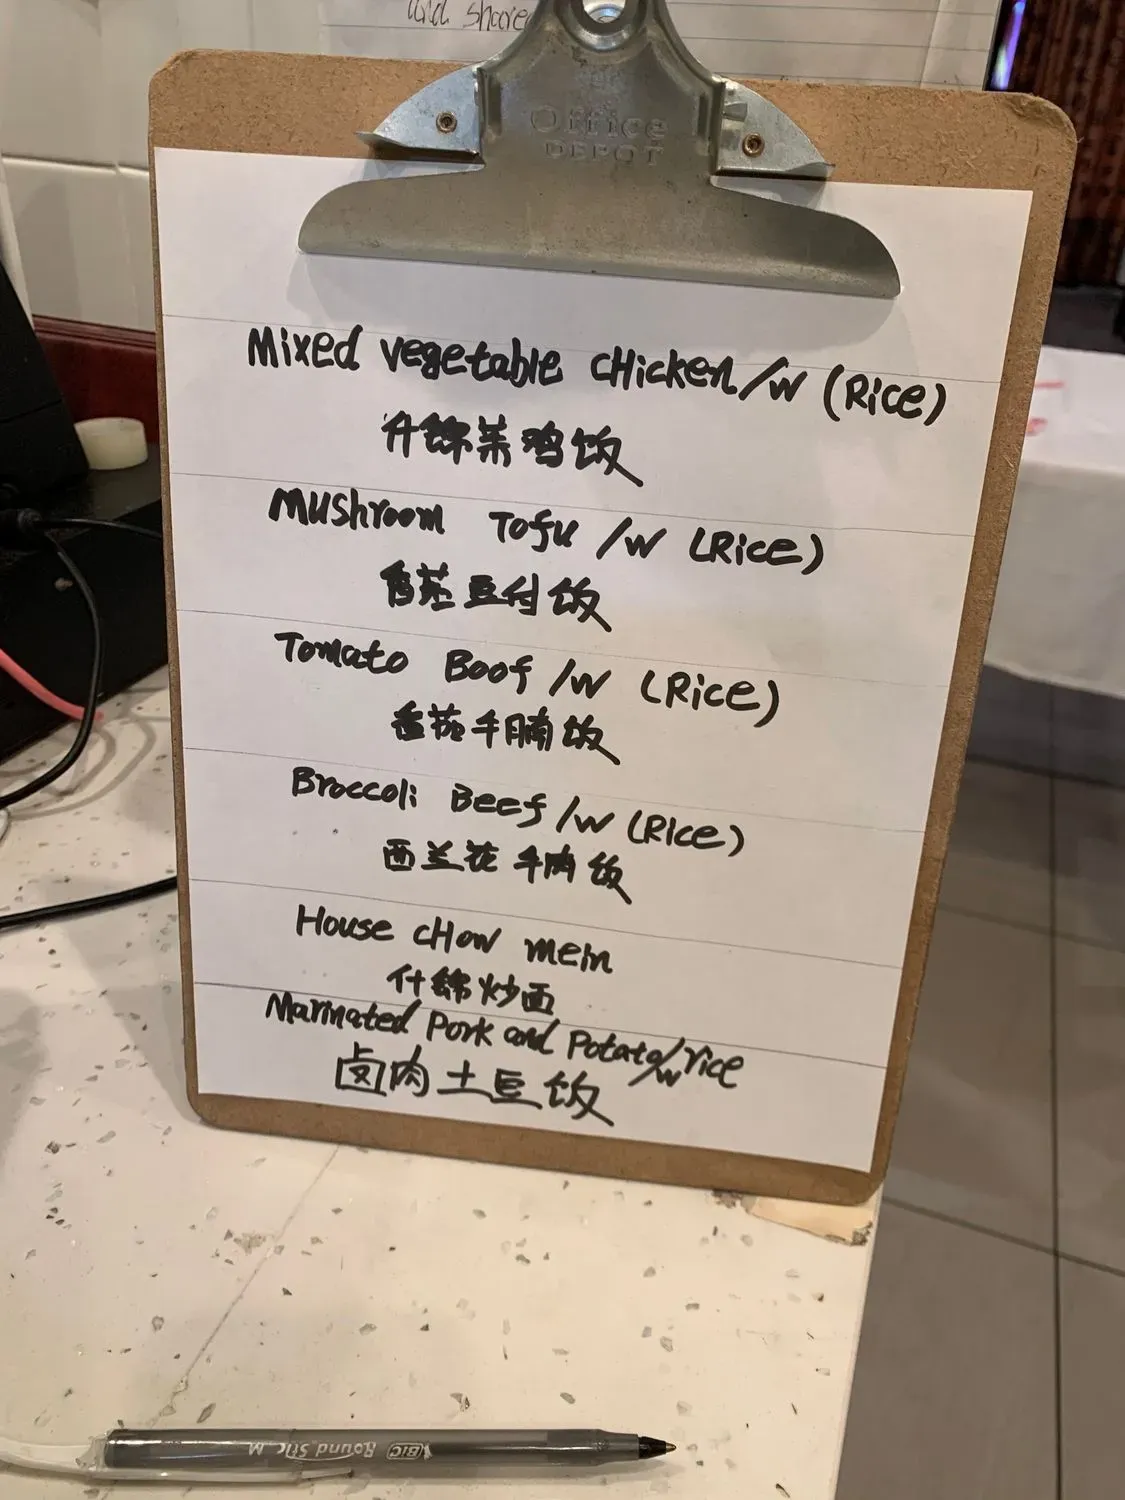 and shared
Office
DEPOT
Mixed vegetable cHicken/w (Rice)
什锦菜鸡饭
Mushroom Tofu /w (Rice)
香菇豆付饭
Tomato Boof /w (Rice)
番茄牛腩饭
Broccoli Beef /w (Rice)
西兰花牛肉饭
House cHow mein
什锦炒面
Marinated Pork and Potato/w rice
卤肉土豆饭
BIC Round Stic M